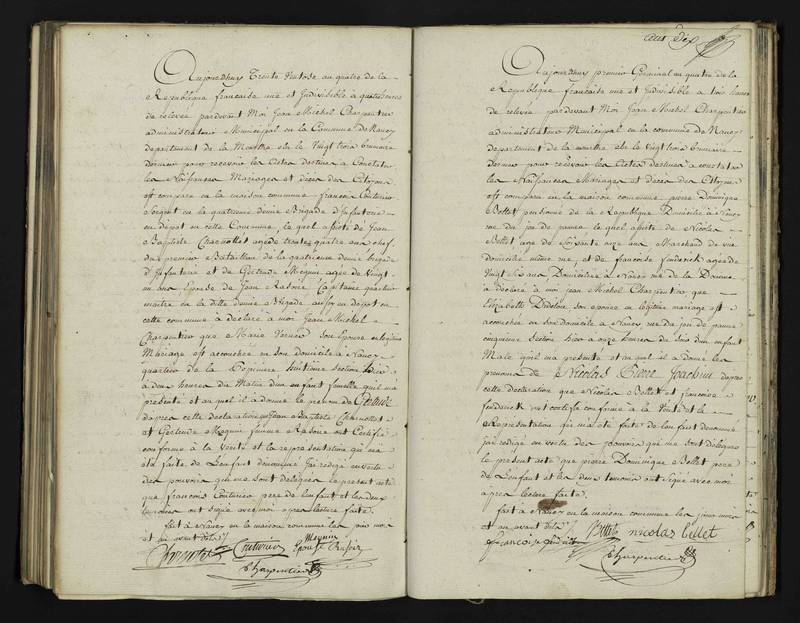 Aujourdhuy Trente Ventose an quatre de la
Republique francaise une et Indivisible à quatre heures
de relevée pardevant Moi Jean Michel Charpentier
administrateur Municipal en la Commune de Nancy
departement de la Meurthe elu le Vingt trois brumaire
dernier pour recevoir les Actes destinés a Constater
les Naissances Mariages et décès des Citoyens
est comparu en la maison commune françois Couturier
Sergent en la quatrieme demie Brigade d'Infanterie
en dépot en cette Commune, le quel assisté de Jean
Baptiste Charnottet agé de trente quatre ans chef
du premier Bataillon de la quatrieme demie brigade
d'Infanterie et de Gertrude Mequin agée de Vingt
un ans Epouse de Jean Rasoir Capitaine quartier
maitre en la ditte demie Brigade aussi en dépot en
cette commune à déclaré à moi Jean Michel
Charpentier que Marie Vernier son Epouse en legitime
Mariage est accouchée en son domicile à Nancy
quartier de la Pepiniere huitieme section hier
à deux heures du Matin d'un enfant femelle quil m'a
présenté et au quel il a donné le prénom de Gertrude
d'apres cette déclaration que Jean Baptiste Charnottet
et Gertrude Mequin femme Rasoir ont Certifié
conforme à la Verité et la representation qui m'a
été faite de L'enfant denommé J'ai redigé en vertu
des pouvoirs qui me sont délégués le present acte
que francois Couturier pere de l'enfant et les deux
temoins ont signé avec moi apres lecture faite.
fait à Nancy en la maison commune les jour mois
et an avant dits
Couturier Mequin
Epouse Rasoir
Charpentier
Cent Dix
Aujourdhuy premier Germinal an quatre de la
Republique francaise une et Indivisible à trois heures
de relevée pardevant Moi Jean Michel Charpentier
administrateur Municipal en la commune de Nancy
departement de la meurthe elu le Vingt trois brumaire
dernier pour recevoir les Actes destinés a constater
les Naissances Mariages et décès des Citoyens
est comparu en la maison commune pierre Dominique
Bellet pensionné de la Republique Domicilié à Nancy
rue du jeu de paume le quel assisté de Nicolas
Bellet agé de Soixante onze ans Marchand de vin
domicilié même rue, et de francoise frederick agée de
Vingt Six ans Domiciliée à Nancy rue de la Douane
à déclaré à moi jean Michel Charpentier que
Elizabeth Didelon son epouse en légitime mariage est
accouchée en son domicile à Nancy rue du jeu de paume
cinquieme section hier à onze heures du soir d'un enfant
Male qu'il m'a présenté et au quel il a donné les
prenoms de Nicolas Pierre Joachim d'apres
cette déclaration que Nicolas Bellet et francoise
frederick ont certifié conforme à la Verité et la
Représentation qui m'a été faite de L'enfant denommé
jai redigé en vertu des pouvoirs qui me sont délégués
le présent acte que pierre Dominique Bellet pere
de L'enfant et les deux temoins ont signé avec moi
apres lecture faite.
fait à Nancy en la maison commune les jour mois
et an avant dits Bellet nicolas bellet
francoise frederick
Charpentier